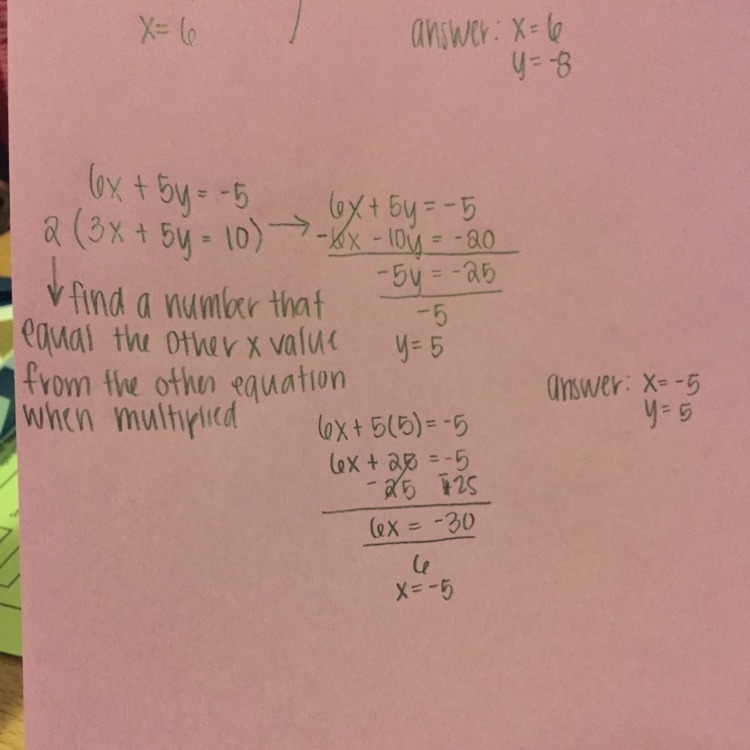 x = 6
answer: x = 6
y = -8
6x + 5y = -5
2 (3x + 5y = 10) →
↓ find a number that
equal the other x value
from the other equation
when multiplied
6x + 5y = -5
-6x - 10y = -20
-5y = -25
-5
y = 5
6x + 5(5) = -5
6x + 25 = -5
-25 -25
6x = -30
6
x = -5
answer: x = -5
y = 5